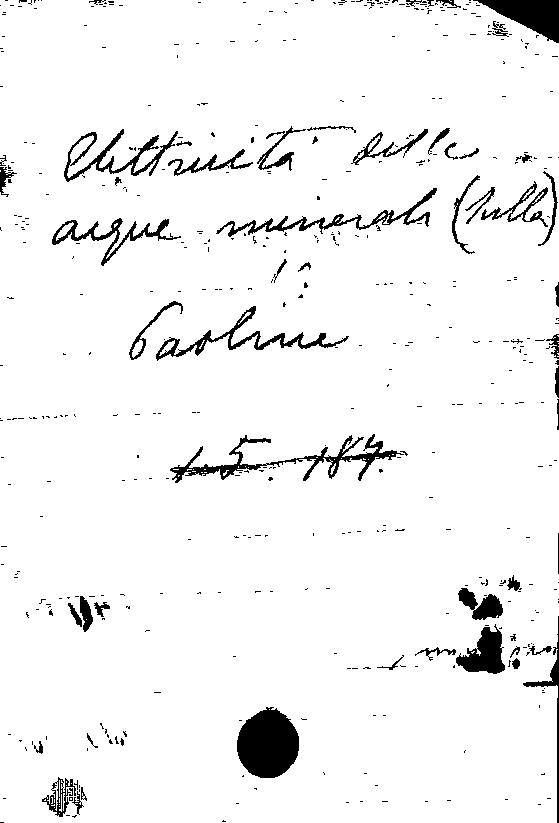 Elettricità delle
acque minerali (Sulla)
Paoline
1.5.187.